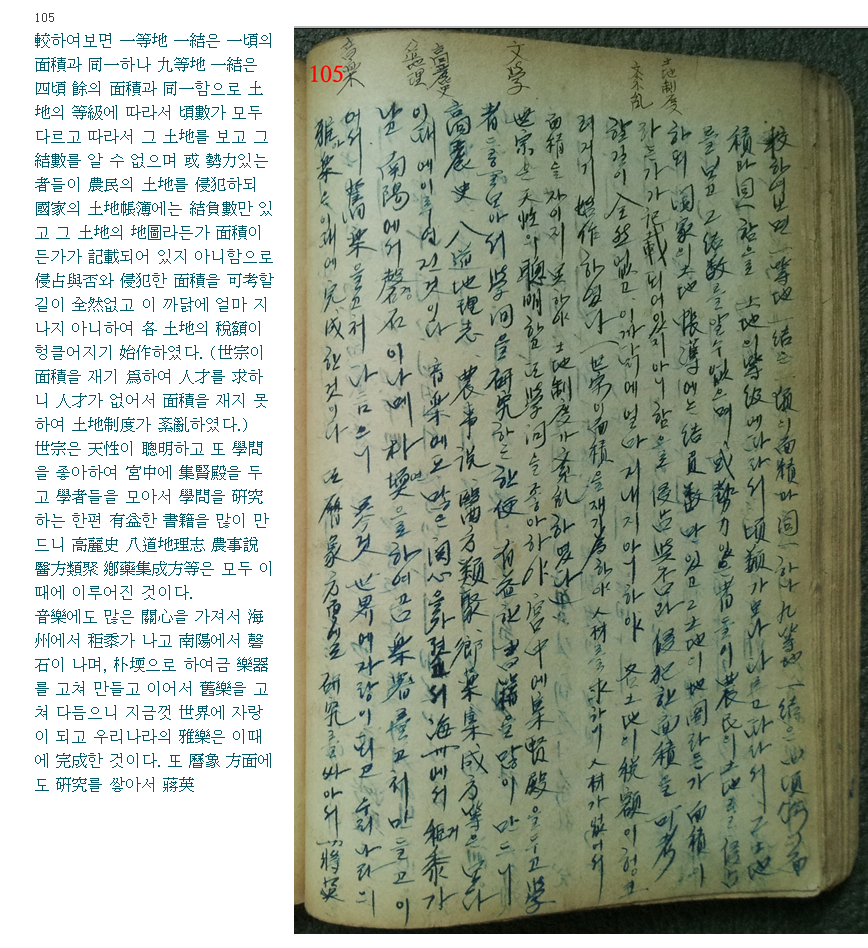 105
較하여보면 一等地 一結은 一頃의
面積과 同一하나 九等地 一結은
四頃 餘의 面積과 同一함으로 土
地의 等級에 따라서 頃數가 모두
다르고 따라서 그 土地를 보고 그
結數를 알 수 없으며 或 勢力있는
者들이 農民의 土地를 侵犯하되
國家의 土地帳簿에는 結負數만 있
고 그 土地의 地圖라든가 面積이
든가가 記載되어 있지 아니함으로
侵占與否와 侵犯한 面積을 可考할
길이 全然없고 이 까닭에 얼마 지
나지 아니하여 各 土地의 稅額이
헝클어지기 始作하였다. (世宗이
面積을 재기 爲하여 人才를 求하
니 人才가 없어서 面積을 재지 못
하여 土地制度가 紊亂하였다.)
世宗은 天性이 聰明하고 또 學問
을 좋아하여 宮中에 集賢殿을 두
고 學者들을 모아서 學問을 硏究
하는 한편 有益한 書籍을 많이 만
드니 高麗史 八道地理志 農事說
醫方類聚 鄕藥集成方等은 모두 이
때에 이루어진 것이다.
音樂에도 많은 關心을 가져서 海
州에서 秬黍가 나고 南陽에서 磬
石이 나며, 朴堧으로 하여금 樂器
를 고쳐 만들고 이어서 舊樂을 고
쳐 다듬으니 지금껏 世界에 자랑
이 되고 우리나라의 雅樂은 이때
에 完成한 것이다. 또 曆象 方面에
도 硏究를 쌓아서 蔣英
105
土地制度
紊亂
文學
高麗史
地理
音樂
較하여보면 一等地 一結은 一頃의 面積과 同一하나 九等地 一結은 四頃餘의 面
積과 同一함으로 土地의 等級에 따라서 頃數가 모다 다르고 따라서 그 土地
를 보고 그 結數를 알 수 없으며 或 勢力있는 者들이 農民의 土地를 侵占
하되 國家의 土地帳簿에는 結負數만 있고 그 土地의 地圖라든가 面積이
라든가가 記載되어있지 아니함으로 侵占與否와 侵犯한 面積을 可考
할 길이 全然없고 이까닭에 얼마 지내지 아니하야 各土地의 稅額이 헝크
러지기 始作하였다 (世宗이 面積을 재기 爲하야 人材를 求하니 人材가 없어서
面積을 자이지 못하야 土地制度가 紊亂하였다)
世宗은 天性이 聰明하고 또 學問을 좋아하야 宮中에 集賢殿을 두고 學
者들을 모아서 學問을 硏究하는 한便 有益한 書籍을 많이 만드니
高麗史 八道地理志 農事說 醫方類聚 鄕藥集成方等은 모다
이때에 이루어진 것이다 音樂에도 많은 關心을 가져서 海州에서 秬黍가
나고 南陽에서 磬石이 나매 朴堧으로 하여금 樂器를 고처 만들고 이
어서 舊樂을 고처 다듬으니 至今껏 世界에 자랑이 되고 우리나라의
雅樂은 이때에 完成한 것이다 또 曆象方面에도 硏究를 싸아서 蔣英